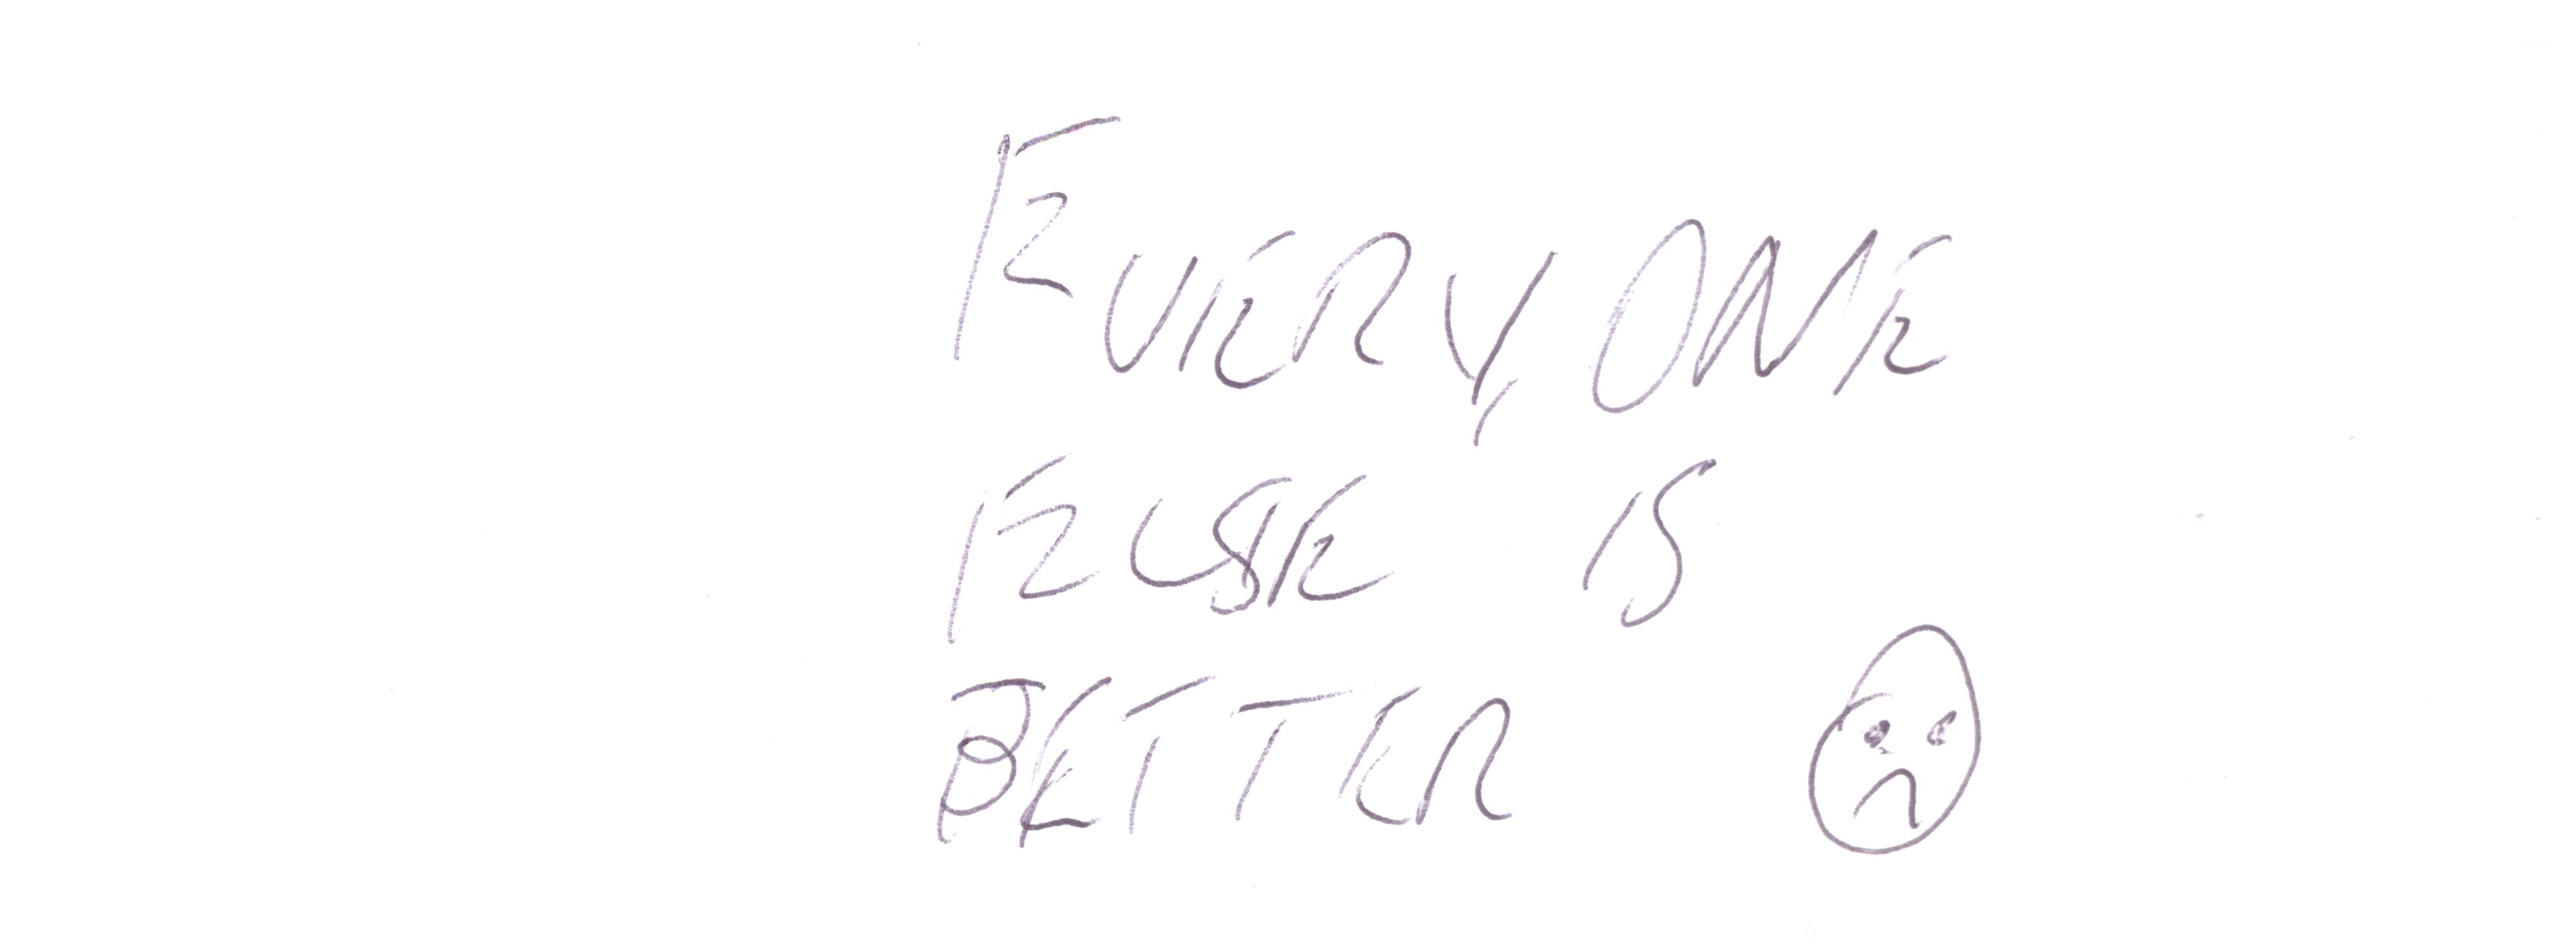 EVERYONE
ELSE IS
BETTER